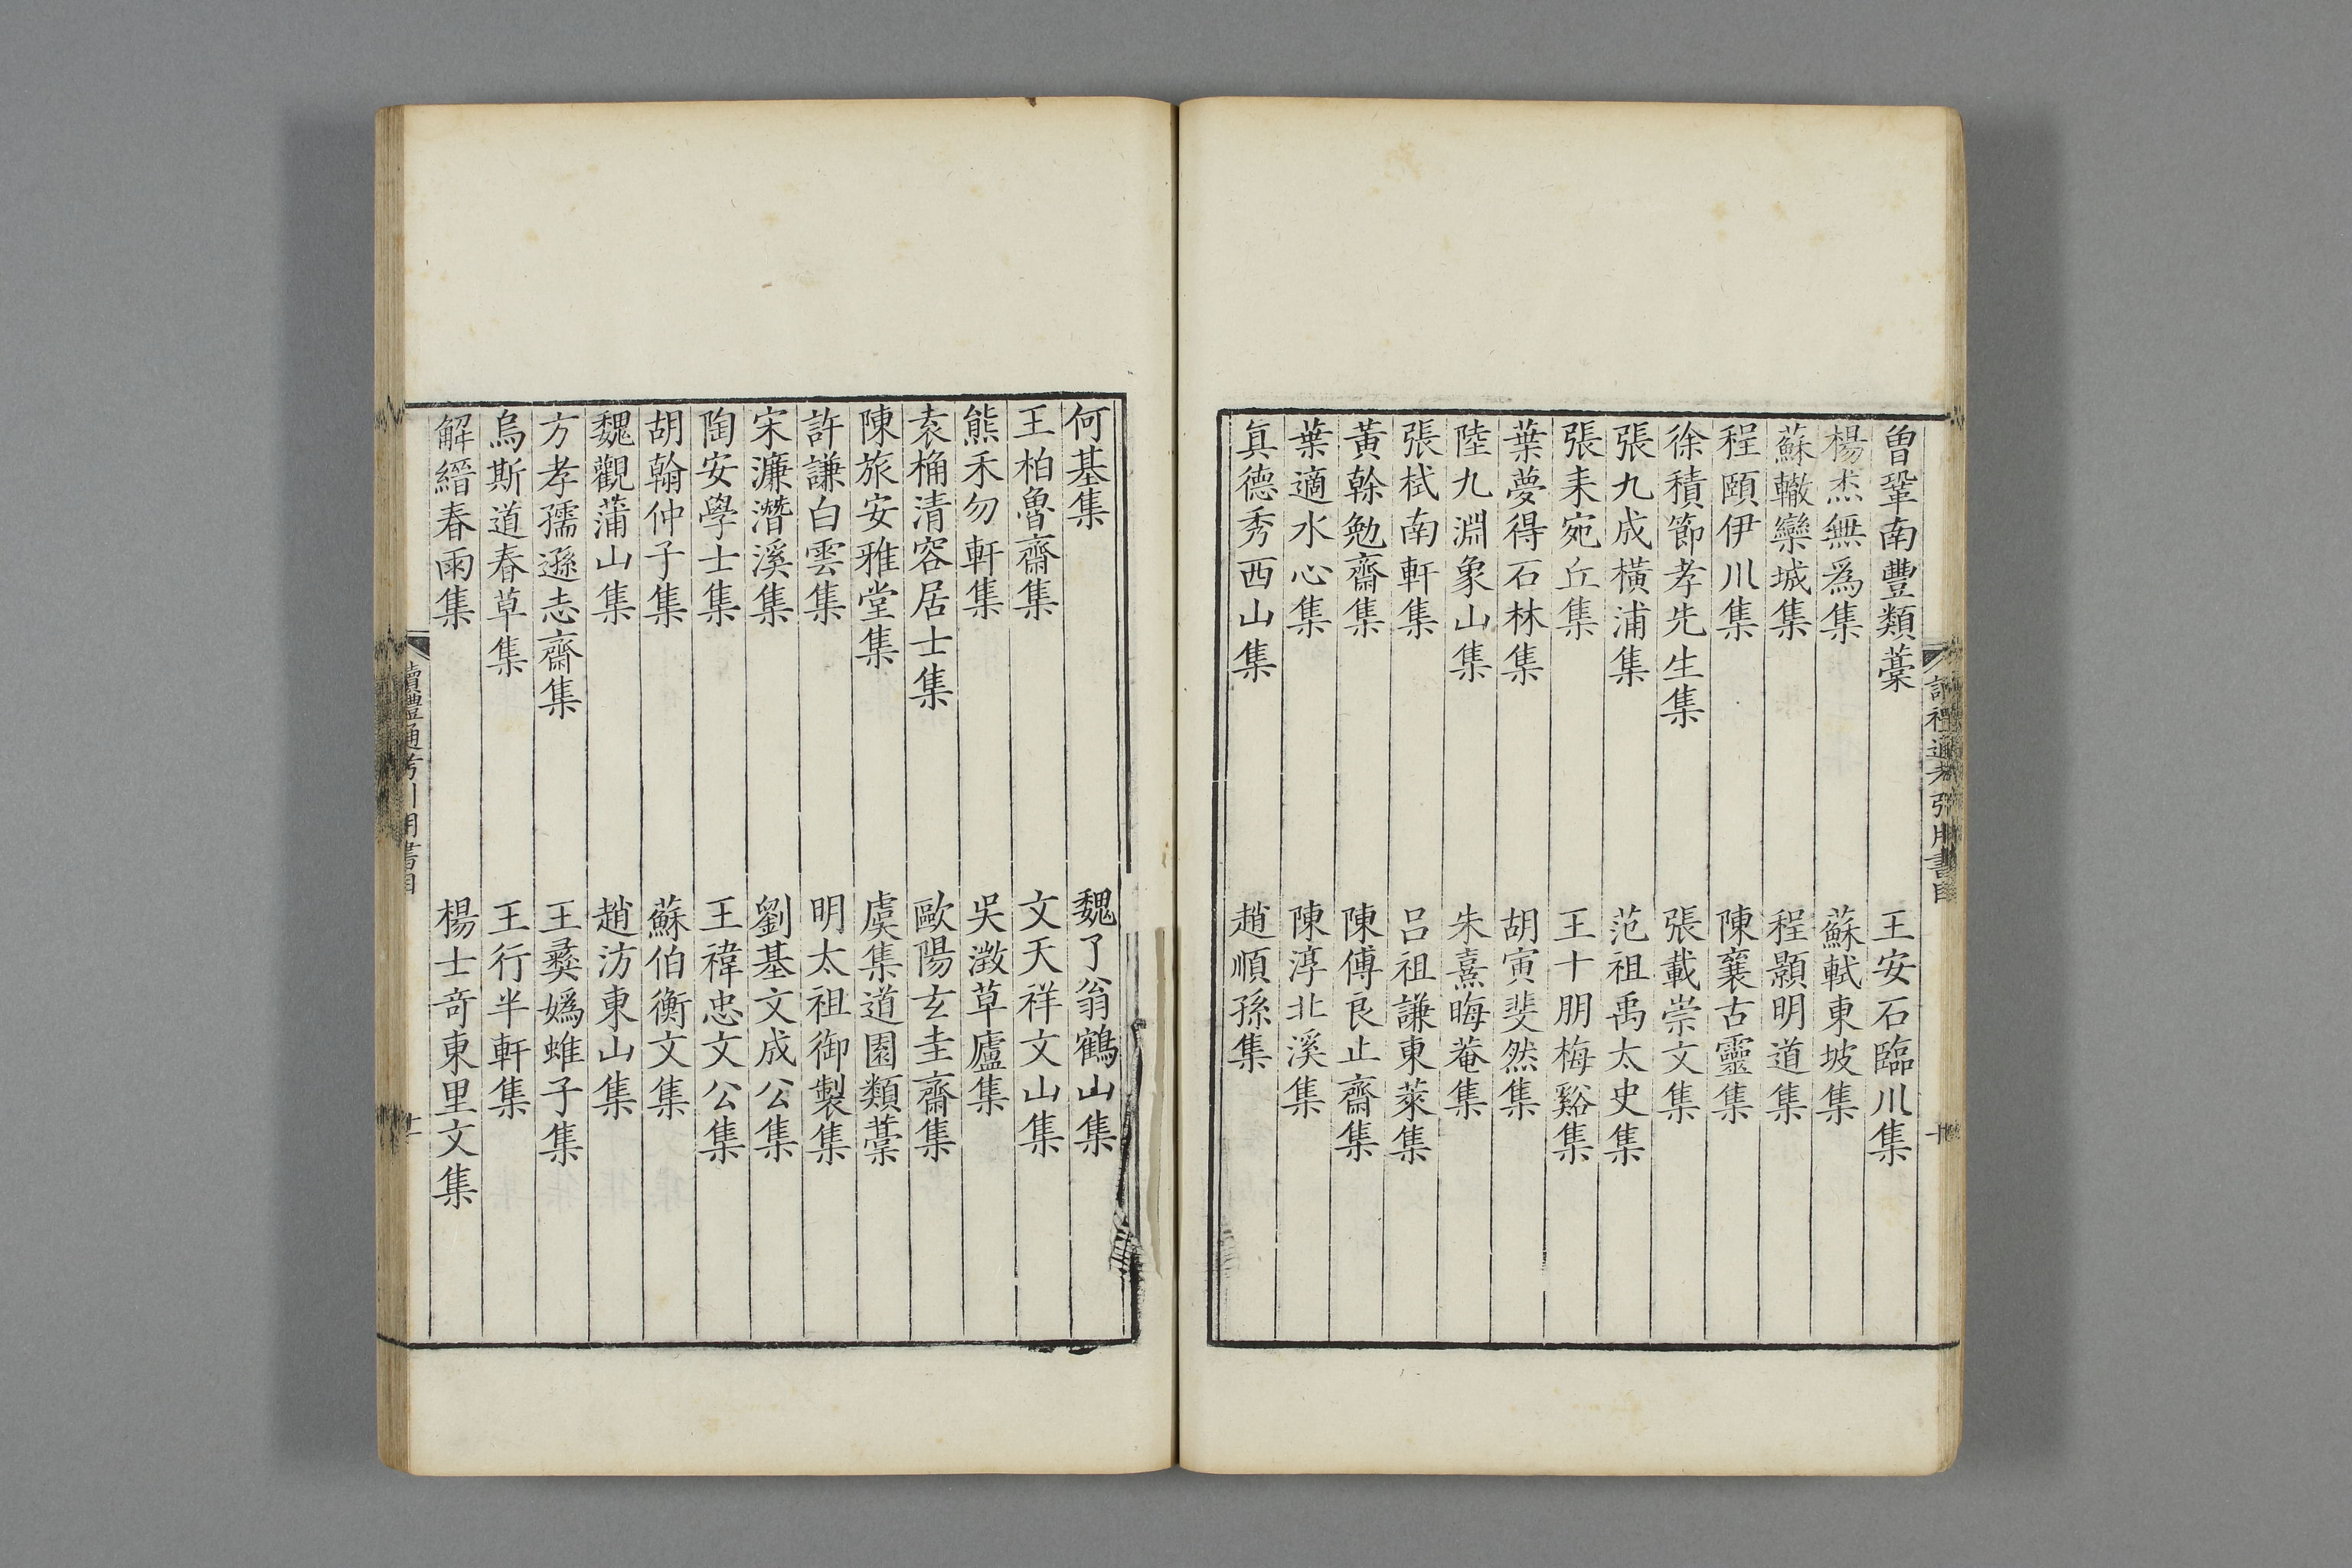 曾鞏南豐類藳　王安石臨川集
楊杰無爲集　蘇軾東坡集
蘇轍欒城集　程顥明道集
程頤伊川集　陳襄古靈集
徐積節孝先生集　張載崇文集
張九成橫浦集　范祖禹太史集
張耒宛丘集　王十朋梅谿集
葉夢得石林集　胡寅斐然集
陸九淵象山集　朱熹晦菴集
張栻南軒集　呂祖謙東萊集
黃榦勉齋集　陳傅良止齋集
葉適水心集　陳淳北溪集
眞德秀西山集　趙順孫集
何基集　魏了翁鶴山集
王柏魯齋集　文天祥文山集
熊禾勿軒集　吳澂草廬集
袁桷清容居士集　歐陽玄圭齋集
陳旅安雅堂集　虞集道園類藳
許謙白雲集　明太祖御製集
宋濂潛溪集　劉基文成公集
陶安學士集　王禕忠文公集
胡翰仲子集　蘇伯衡文集
魏觀蒲山集　趙汸東山集
方孝孺遜志齋集　王彝嬀蜼子集
烏斯道春草集　王行半軒集
解縉春雨集　楊士奇東里文集
讀禮通考引用書目